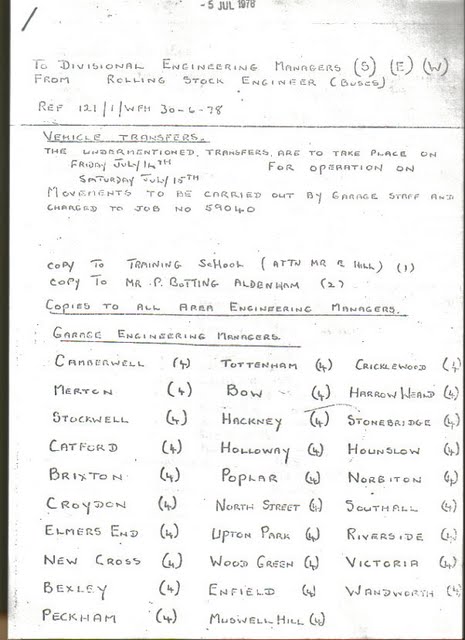 - 5 JUL 1978
TO DIVISIONAL ENGINEERING MANAGERS (S) (E) (W)
FROM ROLLING STOCK ENGINEER (BUSES)
REF 121/1/WPH 30-6-78
VEHICLE TRANSFERS.
THE UNDERMENTIONED TRANSFERS ARE TO TAKE PLACE ON
FRIDAY JULY 14TH FOR OPERATION ON
SATURDAY JULY 15TH
MOVEMENTS TO BE CARRIED OUT BY GARAGE STAFF AND
CHARGED TO JOB NO 59040
COPY TO TRAINING SCHOOL (ATTN MR R HILL) (1)
COPY TO MR P. BOTTING ALDENHAM (2)
COPIES TO ALL AREA ENGINEERING MANAGERS.
GARAGE ENGINEERING MANAGERS.
CAMBERWELL (4) TOTTENHAM (4) CRICKLEWOOD (4)
MERTON (4) BOW (4) HARROW WEALD (4)
STOCKWELL (4) HACKNEY (4) STONEBRIDGE (4)
CATFORD (4) HOLLOWAY (4) HOUNSLOW (4)
BRIXTON (4) POPLAR (4) NORBITON (4)
CROYDON (4) NORTH STREET (4) SOUTHALL (4)
ELMERS END (4) UPTON PARK (4) RIVERSIDE (4)
NEW CROSS (4) WOOD GREEN (4) VICTORIA (4)
BEXLEY (4) ENFIELD (4) WANDWORTH (4)
PECKHAM (4) MUSWELL HILL (4)